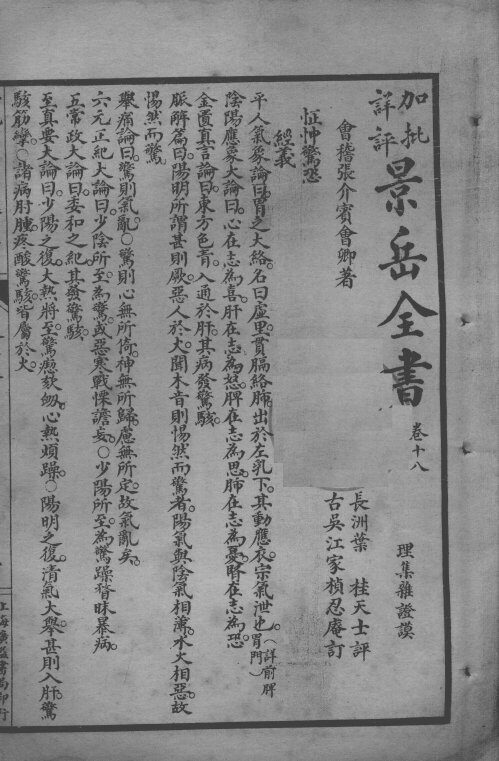 加批
詳評
景岳全書
卷十八
理集雜證謨
會稽張介賓會卿著
長洲葉 桂天士評
古吳江家楨忍庵訂
怔忡驚恐
經義
平人氣象論曰胃之大絡名曰虛里貫膈絡肺出於左乳下其動應衣宗氣泄也(詳前脾胃門)
陰陽應象大論曰心在志為喜肝在志為怒脾在志為思肺在志為憂腎在志為恐
金匱真言論曰東方色青入通於肝其病發驚駭
脈解篇曰陽明所謂甚則厥惡人於火聞木音則惕然而驚者陽氣與陰氣相薄水火相惡故
惕然而驚
舉痛論曰驚則氣亂○驚則心無所倚神無所歸慮無所定故氣亂矣
六元正紀大論曰少陰所至為驚或惡寒戰慄譫妄○少陽所至為驚躁瞀昧暴病
五常政大論曰委和之紀其發驚駭
至真要大論曰少陽之復大熱將至驚瘛欬衂心熱煩躁○陽明之復清氣大舉甚則入肝驚
駭筋攣○諸病胕腫疼酸驚駭皆屬於火
上海廣益書局印行